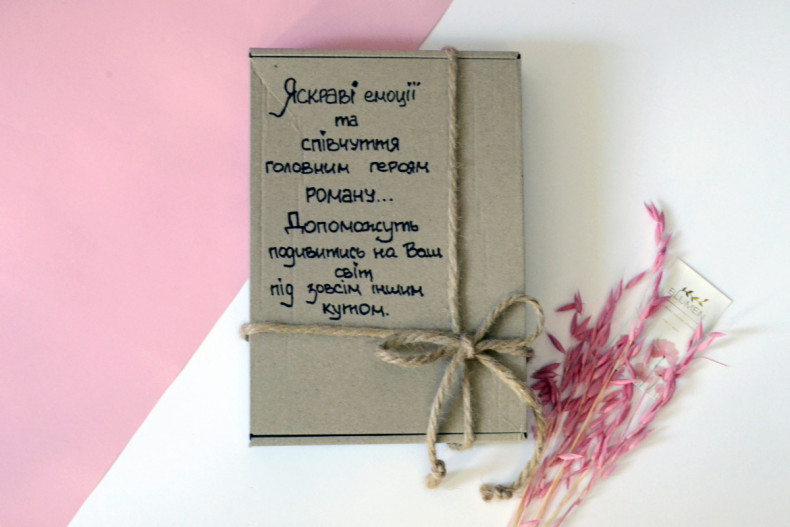 Яскраві емоції
та
співчуття
головним героям
роману...
Допоможуть
подивитись на Ваш
світ
під зовсім іншим
кутом.